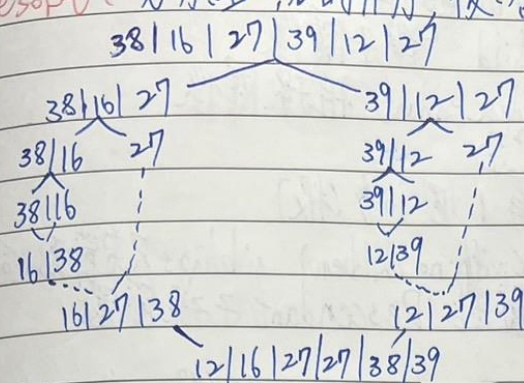 38|16|27|39|12|27
38|16|27 39|12|27
38|16 27 39|12 27
38|16 39|12
16|38 12|39
16|27|38 12|27|39
12|16|27|27|38|39